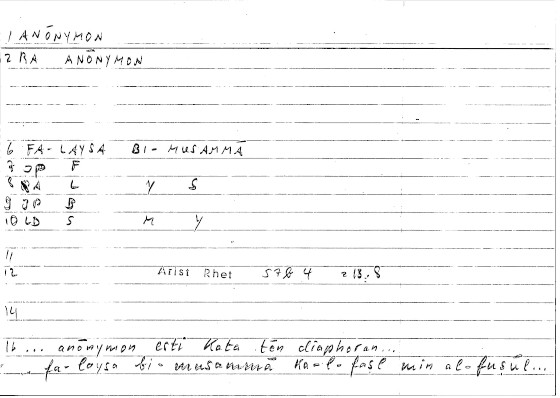 1 ANŌNYMON
2 RA ANŌNYMON
6 FA-LAYSA BI-MUSAMMĀ
7 JP F
8 RA L Y S
9 JP B
10 LD S M Y
11
12 Arist Rhet 57b 4 = 13,8
14
16 ... anōnymon esti kata tēn diaphoran...
. fa-laysa bi-musammā ka-l-faṣl min al-fuṣūl...